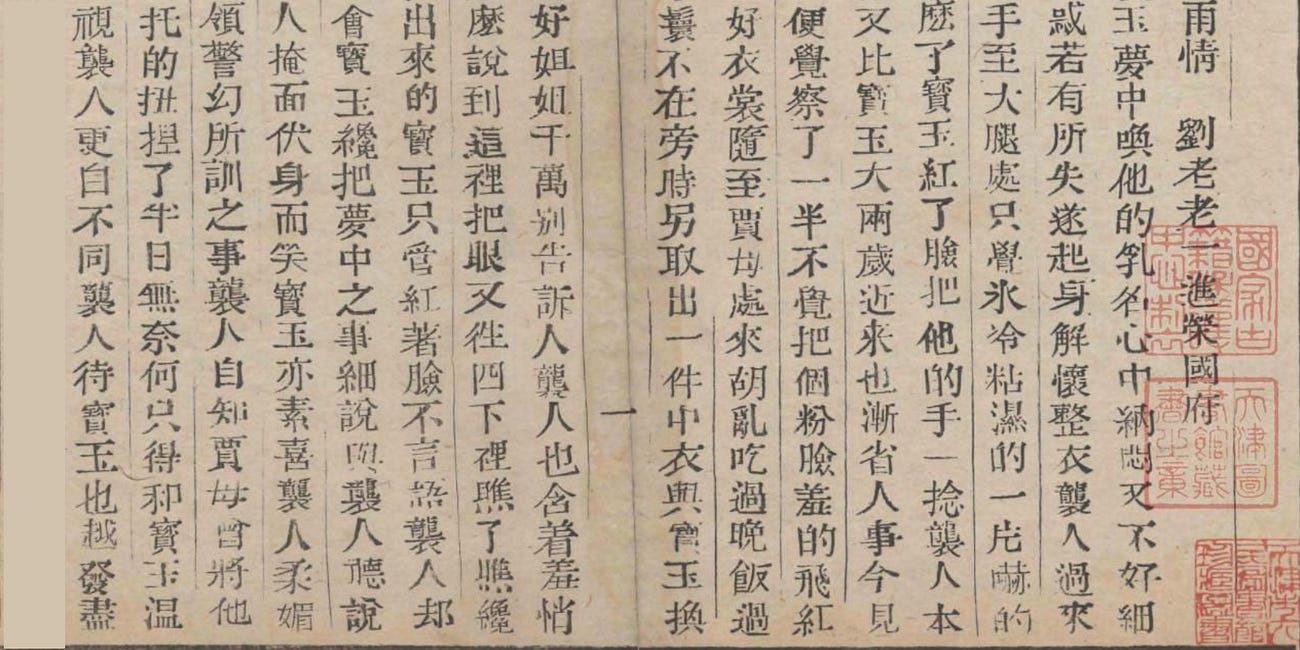 雨情　劉老老一進榮國府
玉夢中喚他的乳名心中納悶又不好細
惑若有所失遂起身解懷整衣襲人過來
手至大腿處只覺氷冷粘濕的一片嚇的
麽了寶玉紅了臉把他的手一捻襲人本
又比寶玉大兩歲近来也漸省人事今見
便覺察了一半不覺把個粉臉羞的飛紅
好衣裳隨至賈母處來胡亂吃過晚飯過
鬟不在旁時另取出一件中衣與寶玉換
一
好姐姐千萬别告訴人襲人也含着羞悄
麽說到這裡把眼又徃四下裡瞧了瞧纔
出來的寶玉只管紅著臉不言語襲人却
會寶玉纔把夢中之事細說與襲人聽說
人掩面伏身而笑寶玉亦素喜襲人柔媚
領警幻所訓之事襲人自知賈母曾將他
托的扭捏了半日無奈何只得和寶玉温
視襲人更自不同襲人待寶玉也越發盡
國家古籍
天津圖書館藏書之章